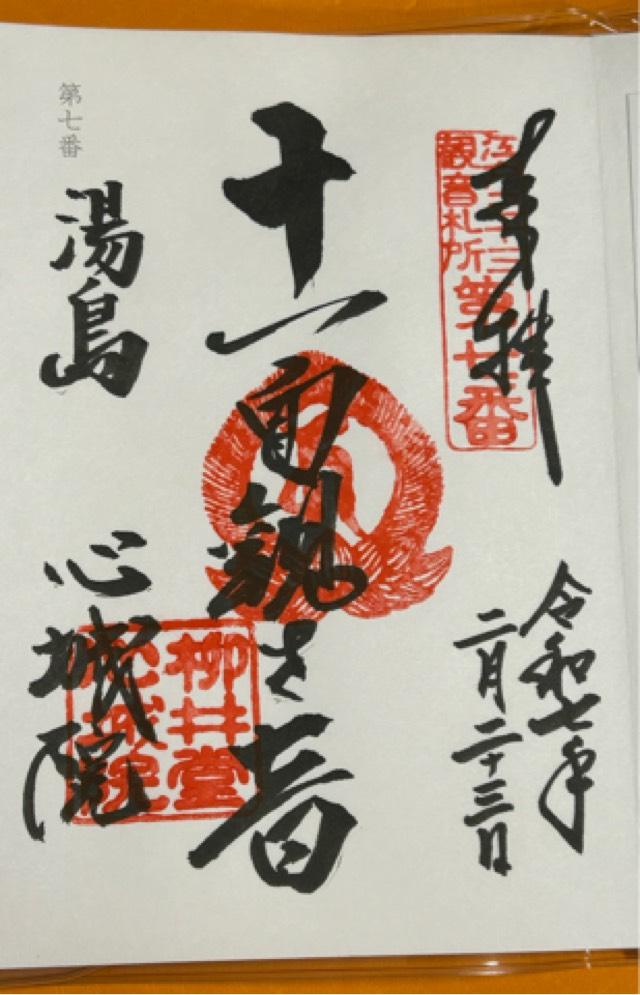 奉拝
江戸三十三
觀音札所
第七番
令和七年
二月二十三日
十一面観世音
柳井堂
心城院
湯島 心城院
第七番